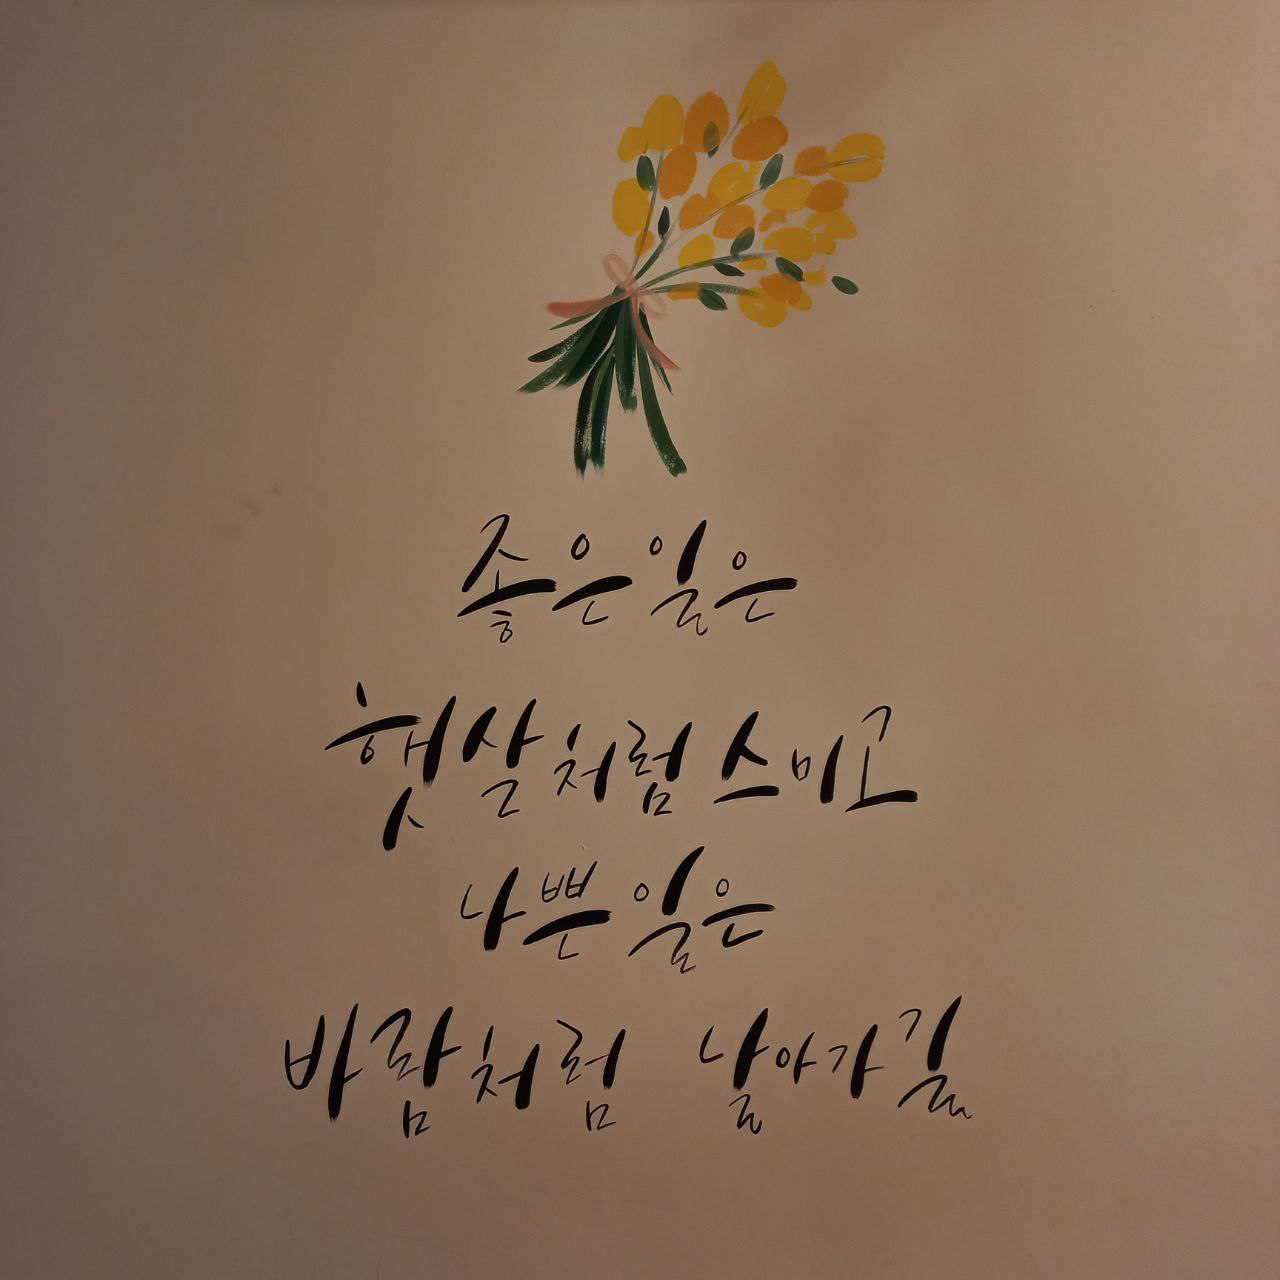 좋은 일은
햇살처럼 스미고
나쁜 일은
바람처럼 날아가길